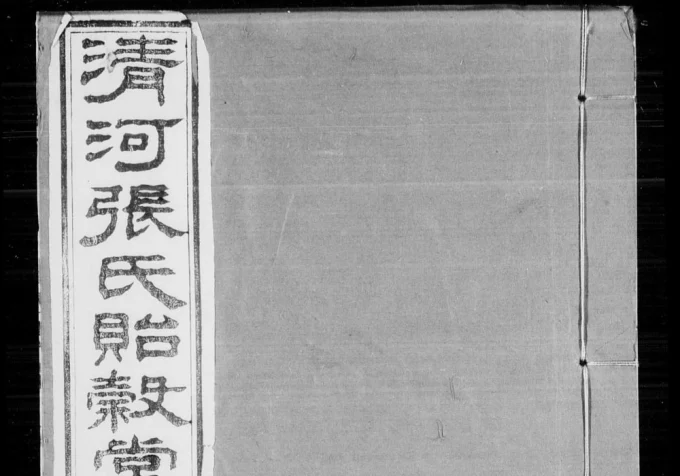 清河張氏貽穀堂